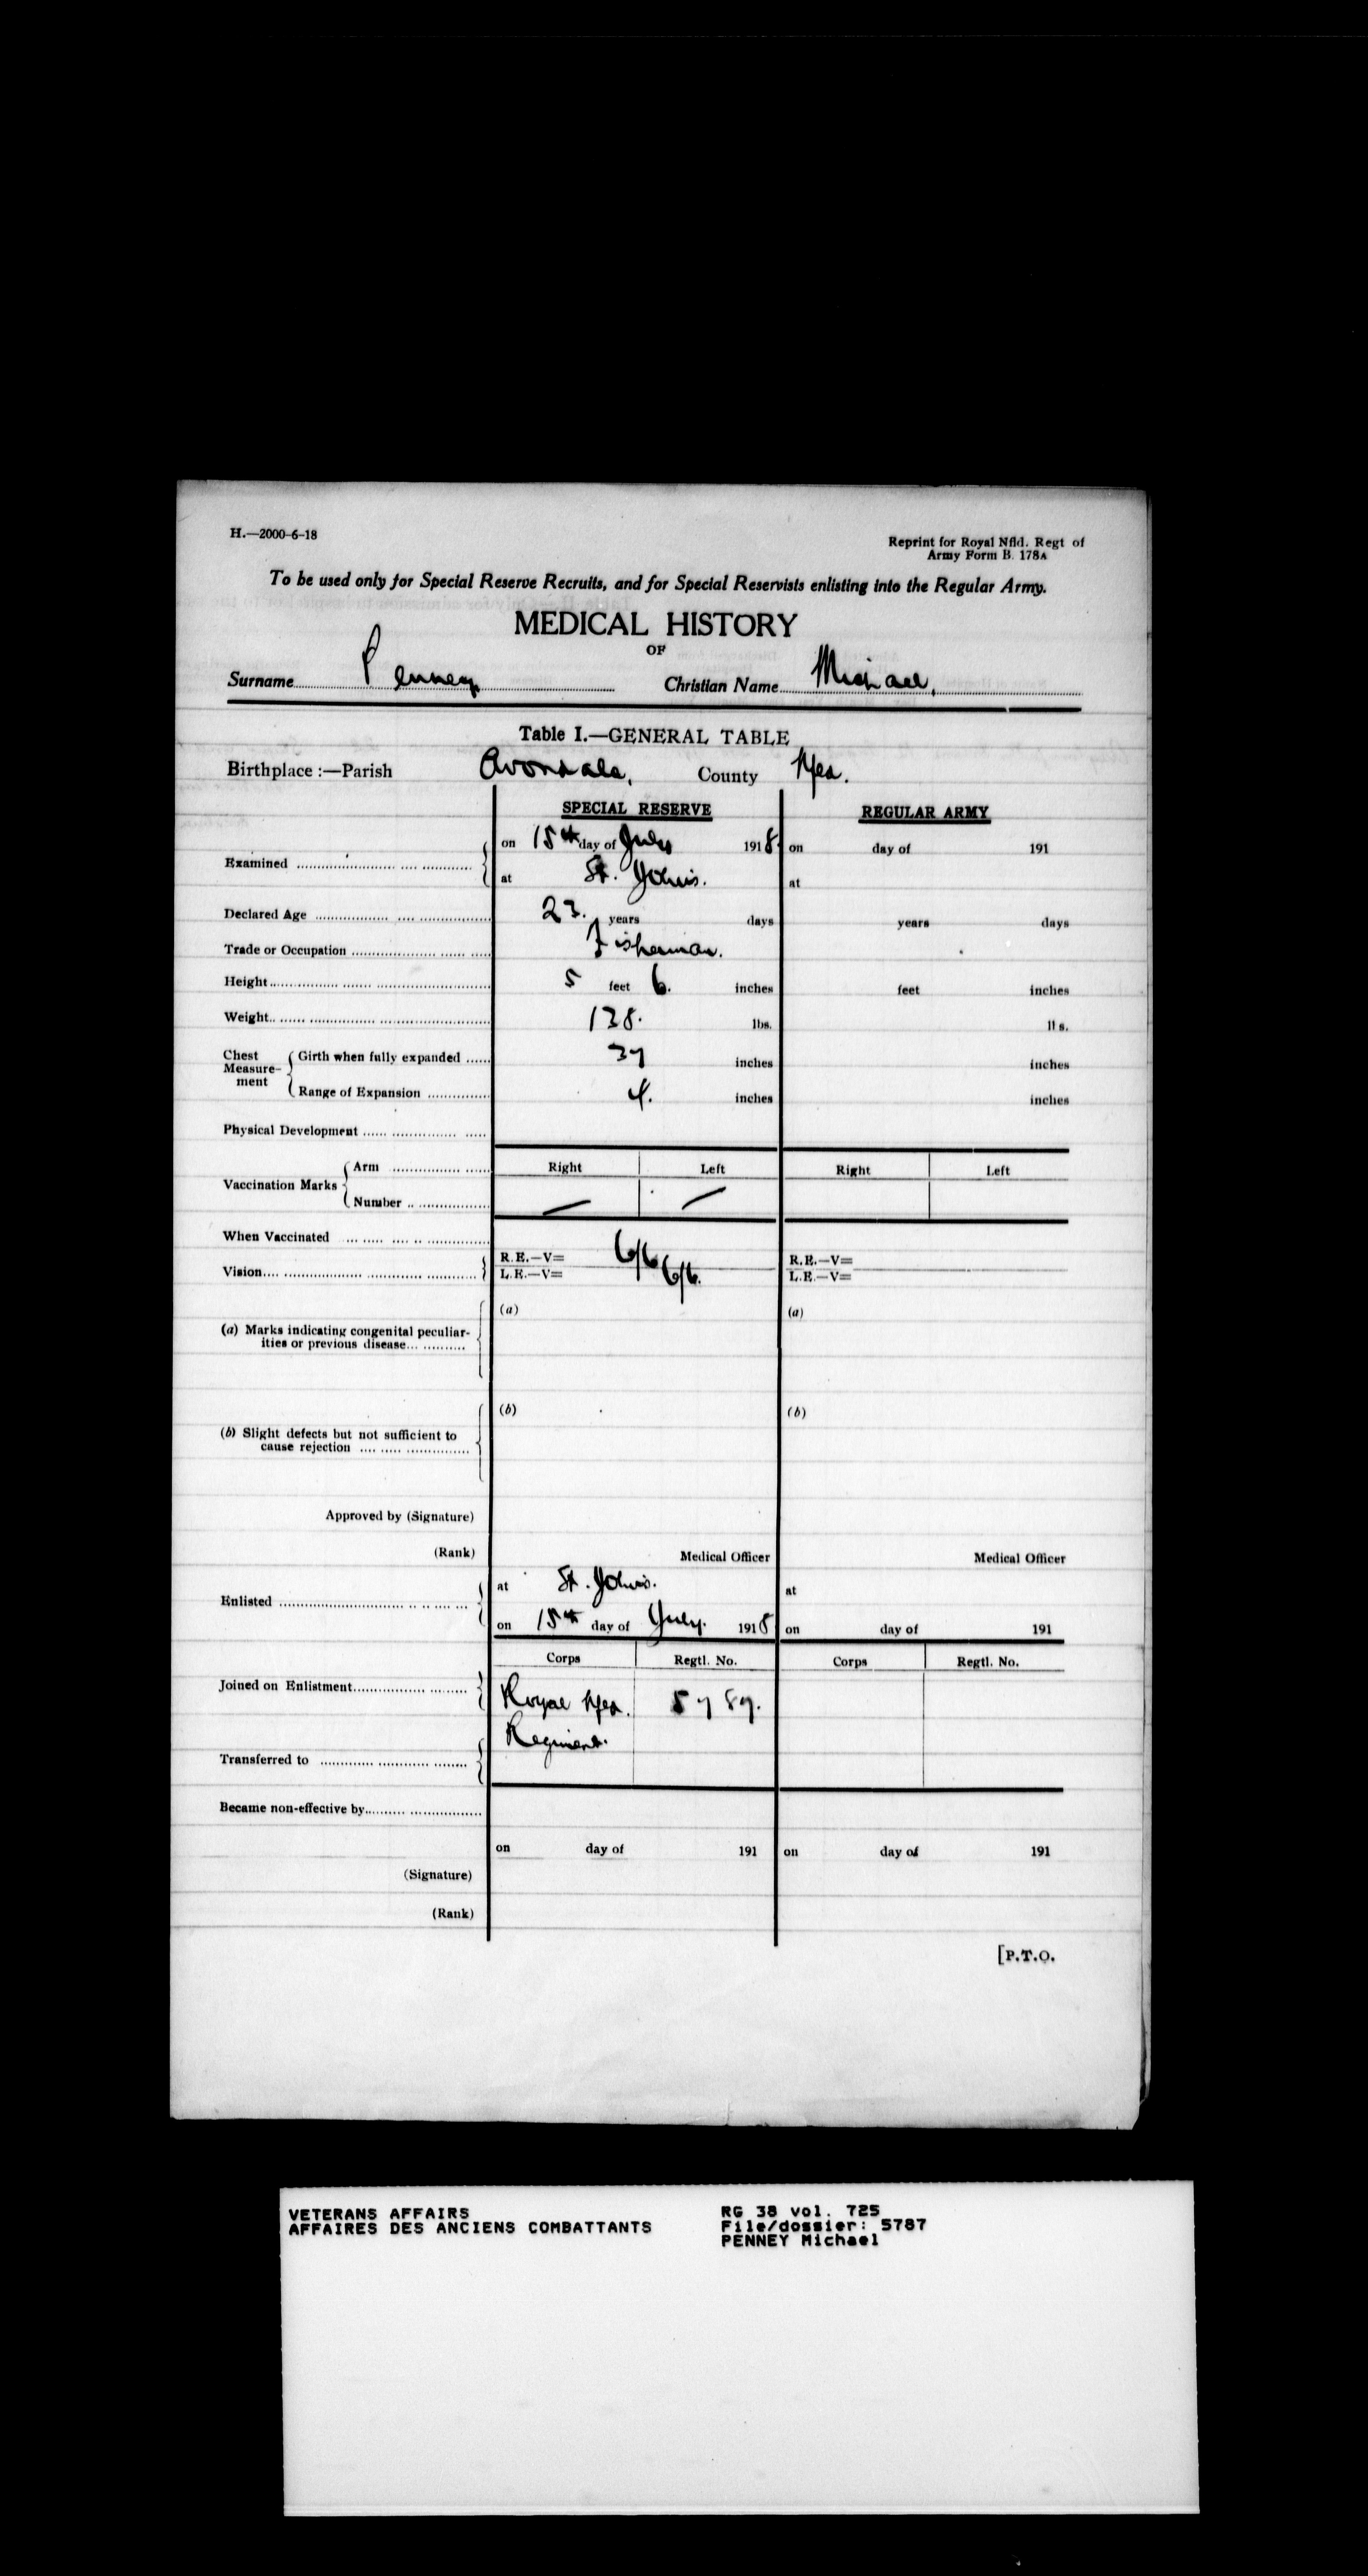 H.—2000-6-18
Reprint for Royal Nfld. Regt of
Army Form B. 178A
To be used only for Special Reserve Recruits, and for Special Reservists enlisting into the Regular Army.
MEDICAL HISTORY
OF
Surname Penney Christian Name Michael,
Table I.—GENERAL TABLE
Birthplace :—Parish Avondale, County Nfld.
SPECIAL RESERVE REGULAR ARMY
Examined on 15th day of July 1918 on day of 191
at St. John's. at
Declared Age 23. years days years days
Trade or Occupation Fisherman.
Height 5 feet 6. inches feet inches
Weight 138. lbs. lbs.
Chest Measurement Girth when fully expanded 37 inches inches
Range of Expansion 4. inches inches
Physical Development
Vaccination Marks Arm Right Left Right Left
Number
When Vaccinated
Vision R.E.—V= 6/6 R.E.—V=
L.E.—V= 6/6. L.E.—V=
(a) Marks indicating congenital peculiar- (a) (a)
ities or previous disease
(b) Slight defects but not sufficient to (b) (b)
cause rejection
Approved by (Signature)
(Rank) Medical Officer Medical Officer
Enlisted at St. John's. at
on 15th day of July. 1918 on day of 191
Corps Regtl. No. Corps Regtl. No.
Joined on Enlistment Royal Nfld. 5787.
Regiment.
Transferred to
Became non-effective by
on day of 191 on day of 191
(Signature)
(Rank)
[P.T.O.
VETERANS AFFAIRS RG 38 vol. 725
AFFAIRES DES ANCIENS COMBATTANTS File/dossier: 5787
PENNEY Michael